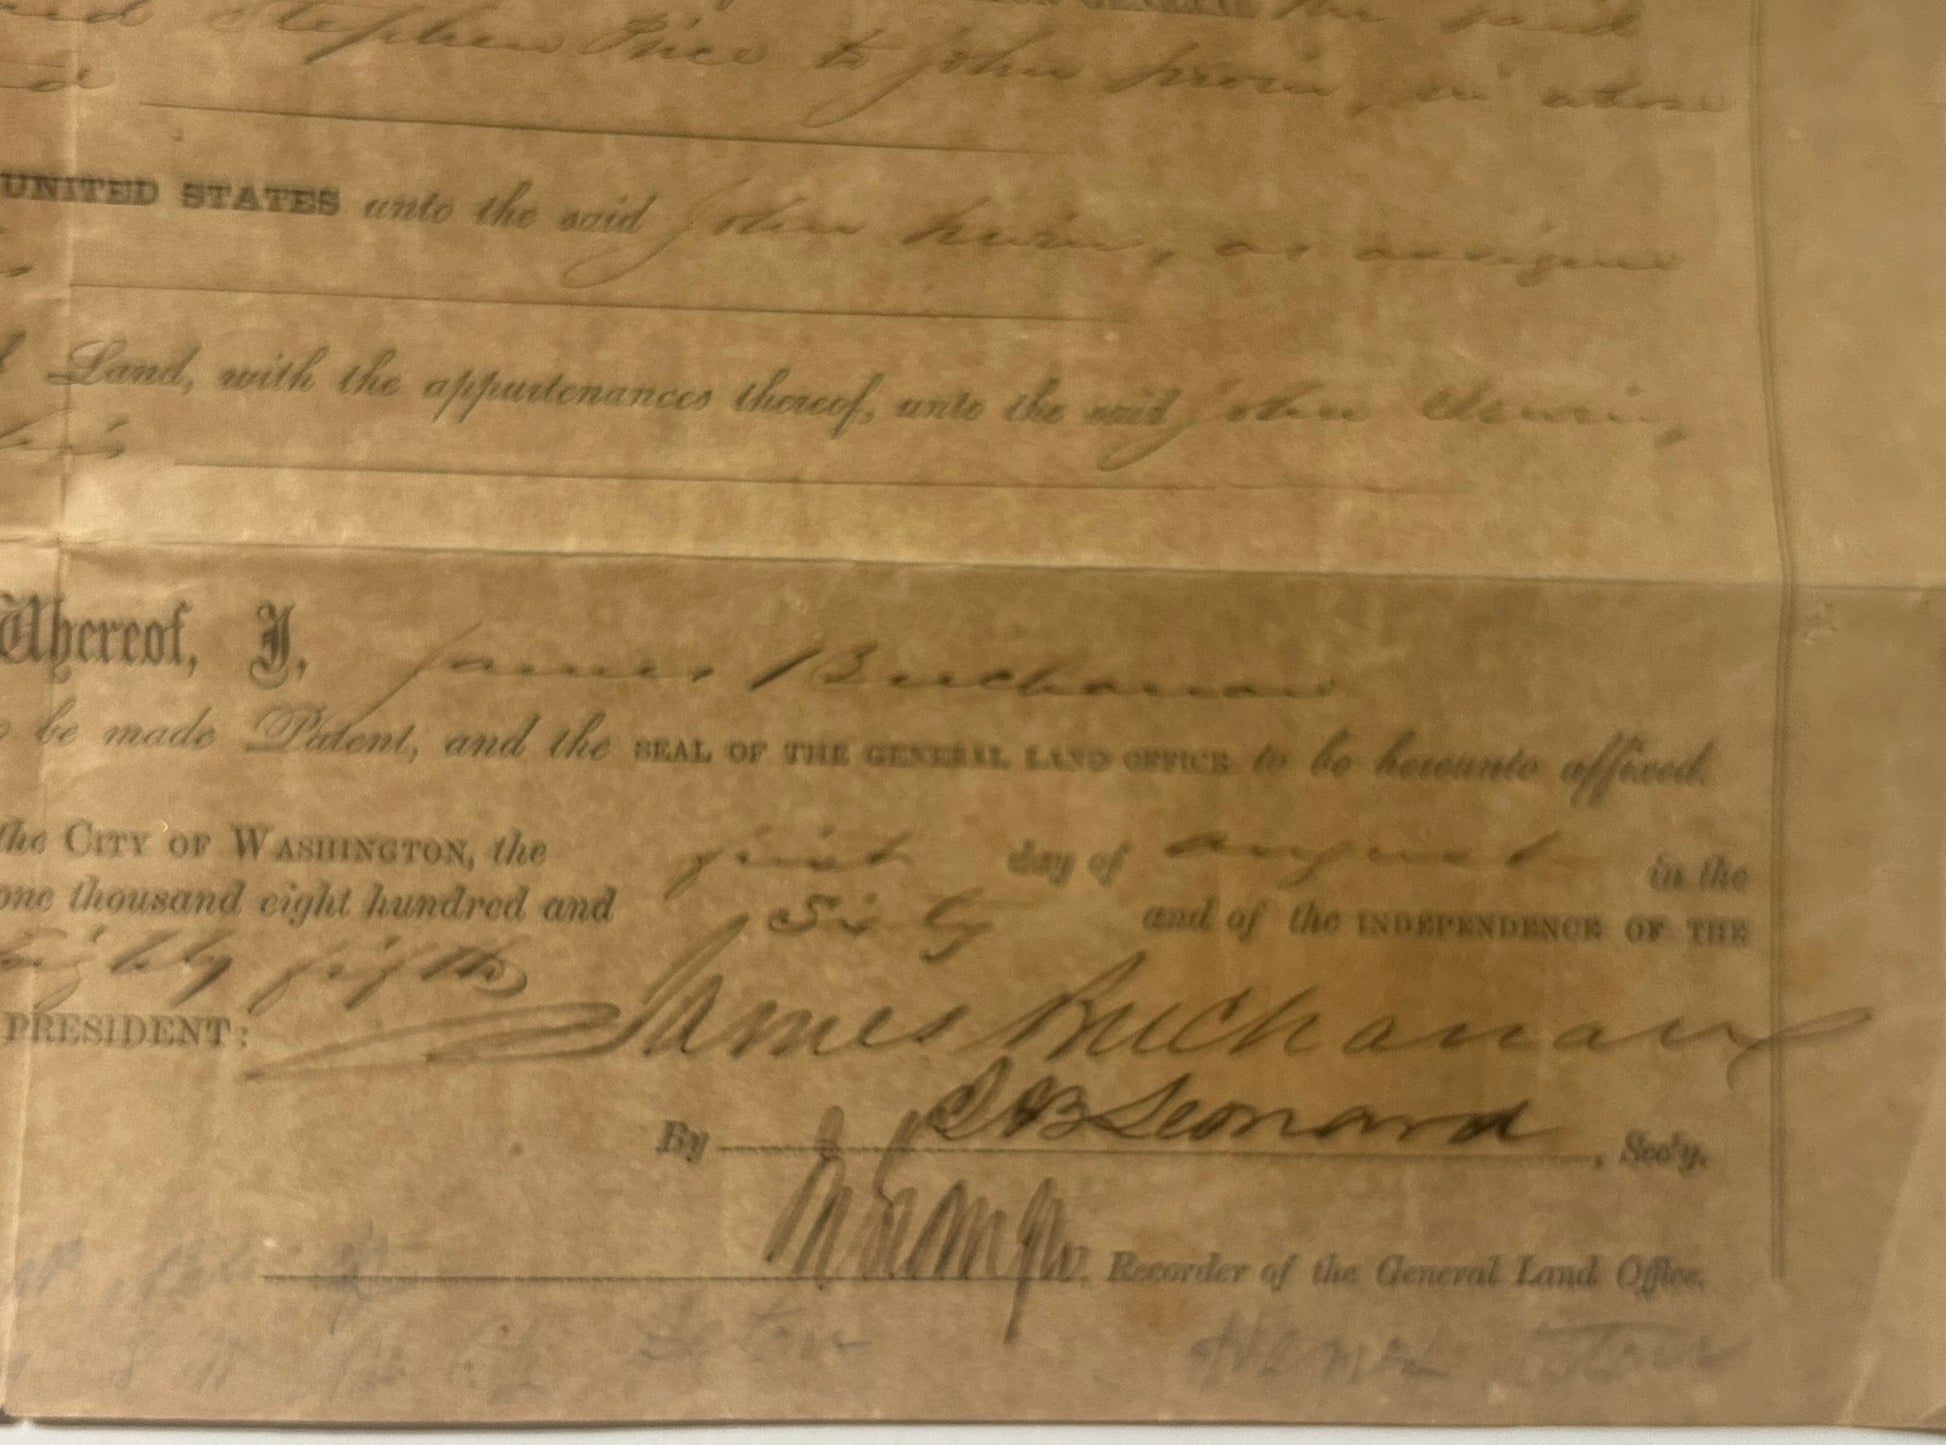 the said
Stephen Price to John
UNITED STATES unto the said John as assignee
Land, with the appurtenances thereof, unto the said John
his
Whereof, I, James Buchanan
be made Patent, and the SEAL OF THE GENERAL LAND OFFICE to be hereunto affixed.
the CITY OF WASHINGTON, the first day of August in the
one thousand eight hundred and Sixty and of the INDEPENDENCE OF THE
Eighty fifth
PRESIDENT: James Buchanan
By J B Leonard, Sec'y.
Recorder of the General Land Office.